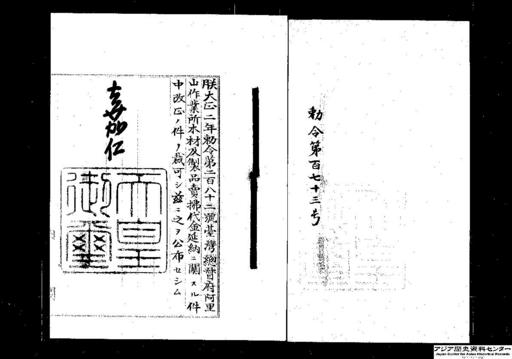 勅令第百七十三号
朕大正二年勅令第二百八十二號臺灣總督府阿里
山作業所木材及製品賣拂代金延納ニ關スル件
中改正ノ件ヲ裁可シ茲ニ之ヲ公布セシム
嘉仁
天皇
御璽
アジア歴史資料センター
Japan Center for Asian Historical Records